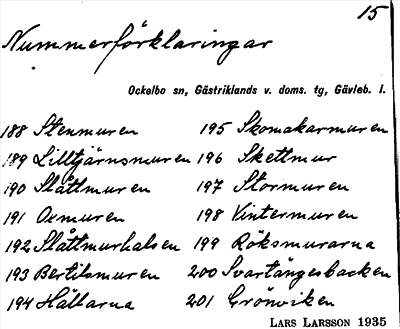 15
Nummerförklaringar
Ockelbo sn, Gästriklands v. doms. tg, Gävleb. l.
188 Stenmuren
189 Lilltjärnsmuren
190 Slåttmuren
191 Oxmuren
192 Slåttmurhalsen
193 Bertilsmuren
194 Hällarna
195 Skomakarmuren
196 Skettmur
197 Stormuren
198 Vintermuren
199 Röksmurarna
200 Svartängesbacken
201 Grönviken
LARS LARSSON 1935